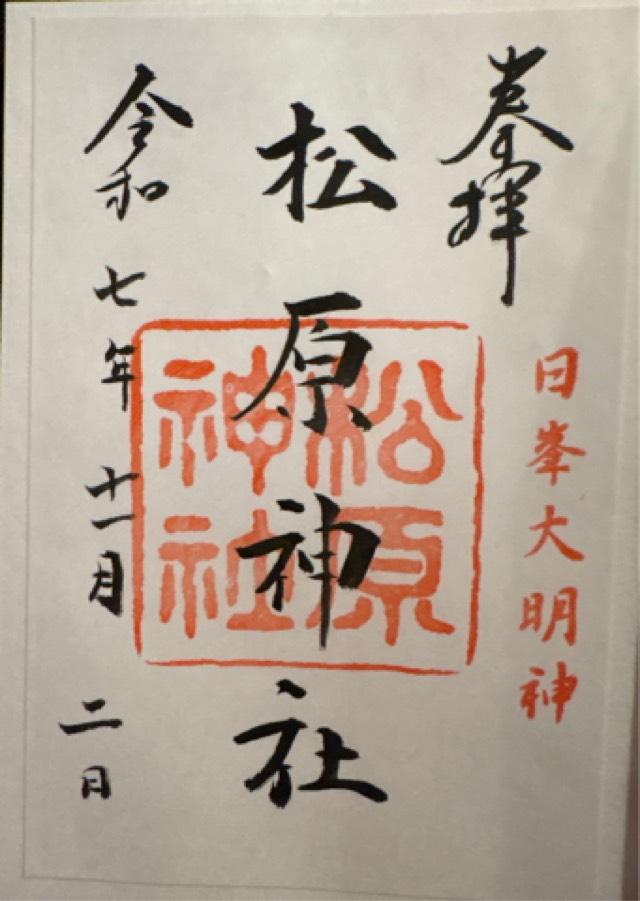 奉拝
日峯大明神
松原神社
松原
神社
令和七年十一月二日